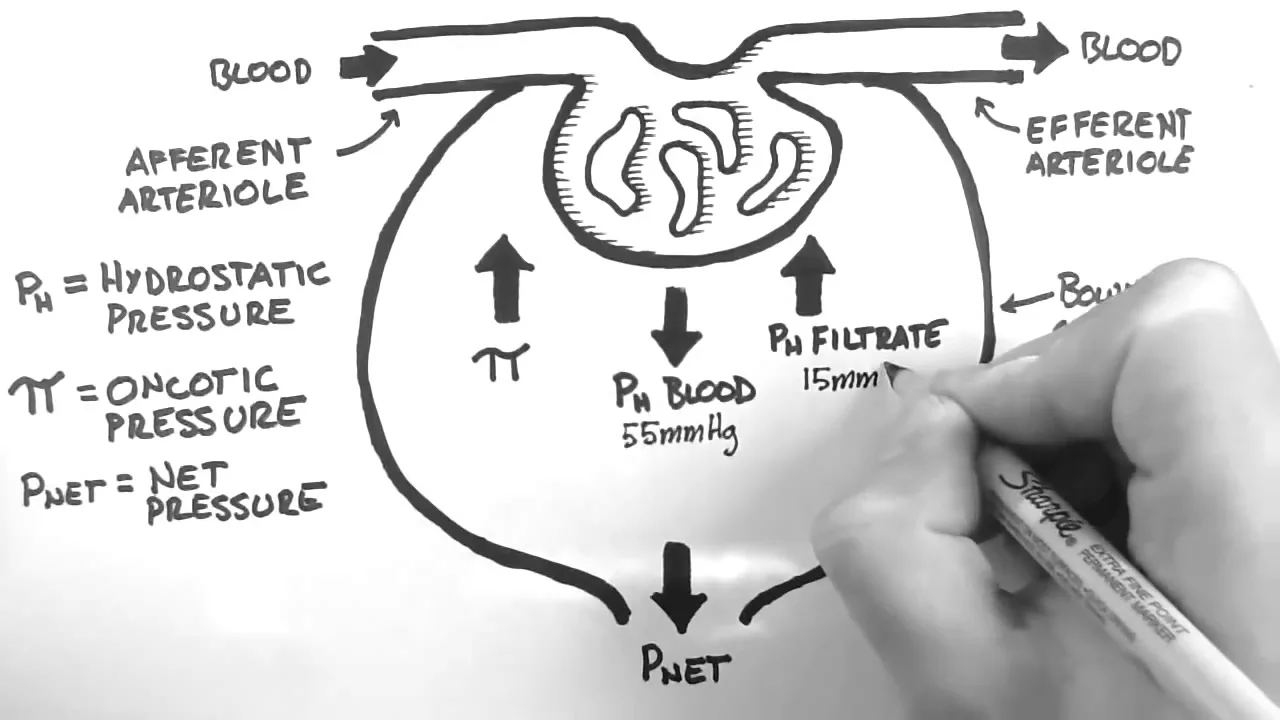 BLOOD
BLOOD
AFFERENT
ARTERIOLE
EFFERENT
ARTERIOLE
PH = HYDROSTATIC
PRESSURE
π = ONCOTIC
PRESSURE
PNET = NET
PRESSURE
π
PH BLOOD
55mmHg
PH FILTRATE
15mm
PNET
Sharpie®
EXTRA FINE POINT
PERMANENT MARKER